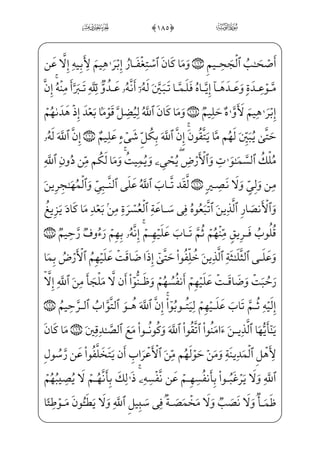 ﴿١٨٥﴾
أَصْحَـٰبُ ٱلْجَـحِـيـمِ ۝ وَمَا كَانَ ٱسْتِغْفَـارُ إِبْرَٰهِيمَ لِأَبِيهِ إِلَّا عَن
مَّـوْعِـدَةٍ وَعَـدَهَـآ إِيَّـاهُ فَلَمَّـا تَبَـيَّنَ لَهُۥٓ أَنَّـهُۥ عَـدُوٌّ لِلَّهِ تَبَـرَّأَ مِنْهُ ۚ إِنَّ
إِبْرَٰهِيمَ لَأَوَّٰهٌ حَلِيمٌ ۝ وَمَا كَانَ ٱللَّهُ لِيُضِلَّ قَوْمًا بَعْدَ إِذْ هَدَىٰهُمْ
حَتَّىٰ يُبَيِّنَ لَهُم مَّا يَتَّقُونَ ۚ إِنَّ ٱللَّهَ بِكُلِّ شَىْءٍ عَلِيمٌ ۝ إِنَّ ٱللَّهَ لَهُۥ
مُلْكُ ٱلسَّمَـٰوَٰتِ وَٱلْأَرْضِ ۖ يُحْىِۦ وَيُمِيتُ ۚ وَمَا لَكُم مِّن دُونِ ٱللَّهِ
مِن وَلِىٍّ وَلَا نَصِـيرٍ ۝ لَّقَد تَّـابَ ٱللَّهُ عَلَى ٱلنَّـبِـىِّ وَٱلْمُهَـٰجِرِينَ
وَٱلْأَنصَارِ ٱلَّذِينَ ٱتَّبَعُوهُ فِى سَـاعَـةِ ٱلْعُسْرَةِ مِنۢ بَعْدِ مَا كَادَ يَزِيغُ
قُلُوبُ فَـرِيقٍ مِّنْهُمْ ثُـمَّ تَـابَ عَلَيْـهِـمْ ۚ إِنَّهُۥ بِهِمْ رَءُوفٌ رَّحِيمٌ ۝
وَعَلَـى ٱلثَّلَـٰثَةِ ٱلَّذِينَ خُلِّفُوا۟ حَتَّىٰٓ إِذَا ضَاقَتْ عَلَيْهِمُ ٱلْأَرْضُ بِمَا
رَحُبَتْ وَضَـاقَـتْ عَلَيْهِمْ أَنفُسُـهُمْ وَظَـنُّوٓا۟ أَن لَّا مَلْجَأَ مِنَ ٱللَّهِ إِلَّآ
إِلَيْهِ ثُـمَّ تَابَ عَلَيْـهِـمْ لِيَتُوبُوٓا۟ ۚ إِنَّ ٱللَّهَ هُـوَ ٱلتَّوَّابُ ٱلرَّحِيمُ ۝
يَـٰٓأَيُّهَا ٱلَّذِيـنَ ءَامَنُوا۟ ٱتَّقُوا۟ ٱللَّهَ وَكُونُـوا۟ مَعَ ٱلصَّـٰدِقِيـنَ ۝ مَا كَانَ
لِأَهْلِ ٱلْمَدِينَةِ وَمَنْ حَوْلَهُم مِّنَ ٱلْأَعْرَابِ أَن يَتَخَلَّفُوا۟ عَن رَّسُولِ
ٱللَّهِ وَلَا يَرْغَبُـوا۟ بِأَنفُسِـهِـمْ عَن نَّفْسِهِۦ ۚ ذَٰلِكَ بِأَنَّـهُـمْ لَا يُصِيبُهُمْ
ظَـمَـأٌ وَلَا نَصَبٌ وَلَا مَخْمَصَـةٌ فِى سَبِيلِ ٱللَّهِ وَلَا يَطَـُٔونَ مَـوْطِئًا